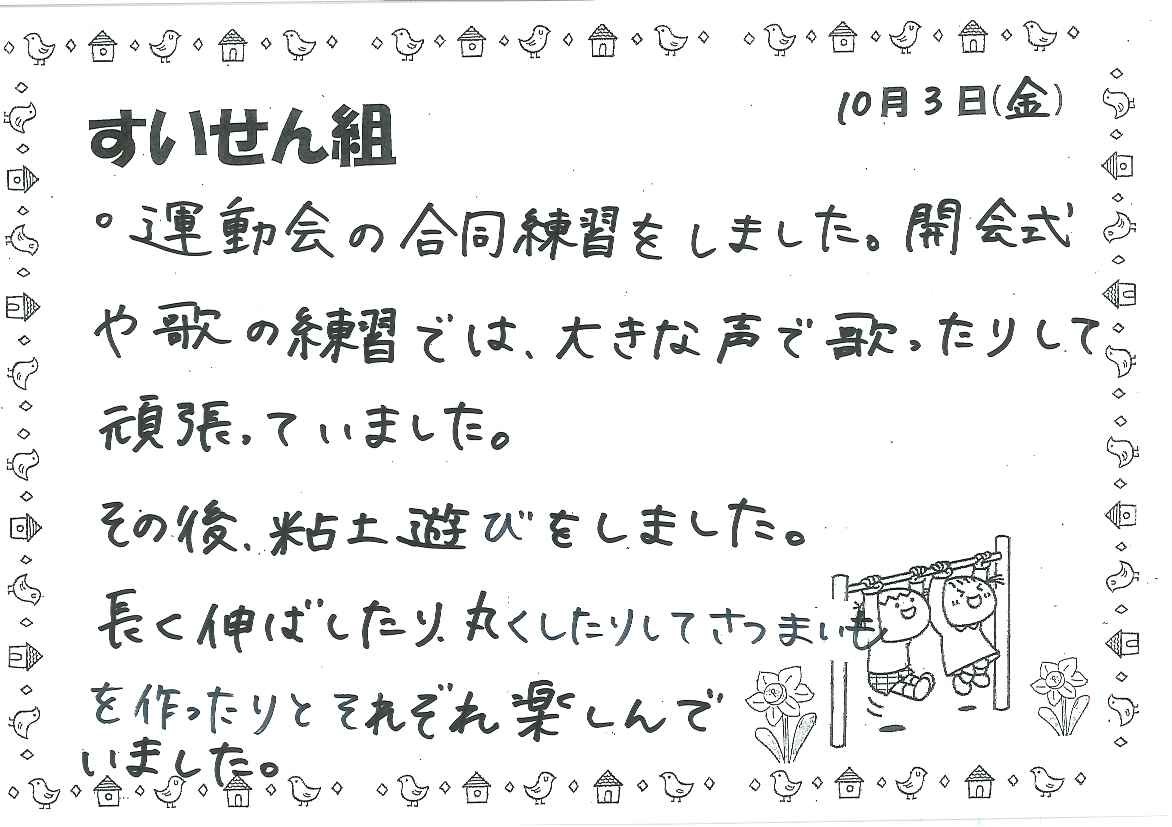 10月3日(金)
すいせん組
○運動会の合同練習をしました。開会式
や歌の練習では、大きな声で歌ったりして
頑張っていました。
その後、粘土遊びをしました。
長く伸ばしたり、丸くしたりしてさつまいも
を作ったりとそれぞれ楽しんで
いました。